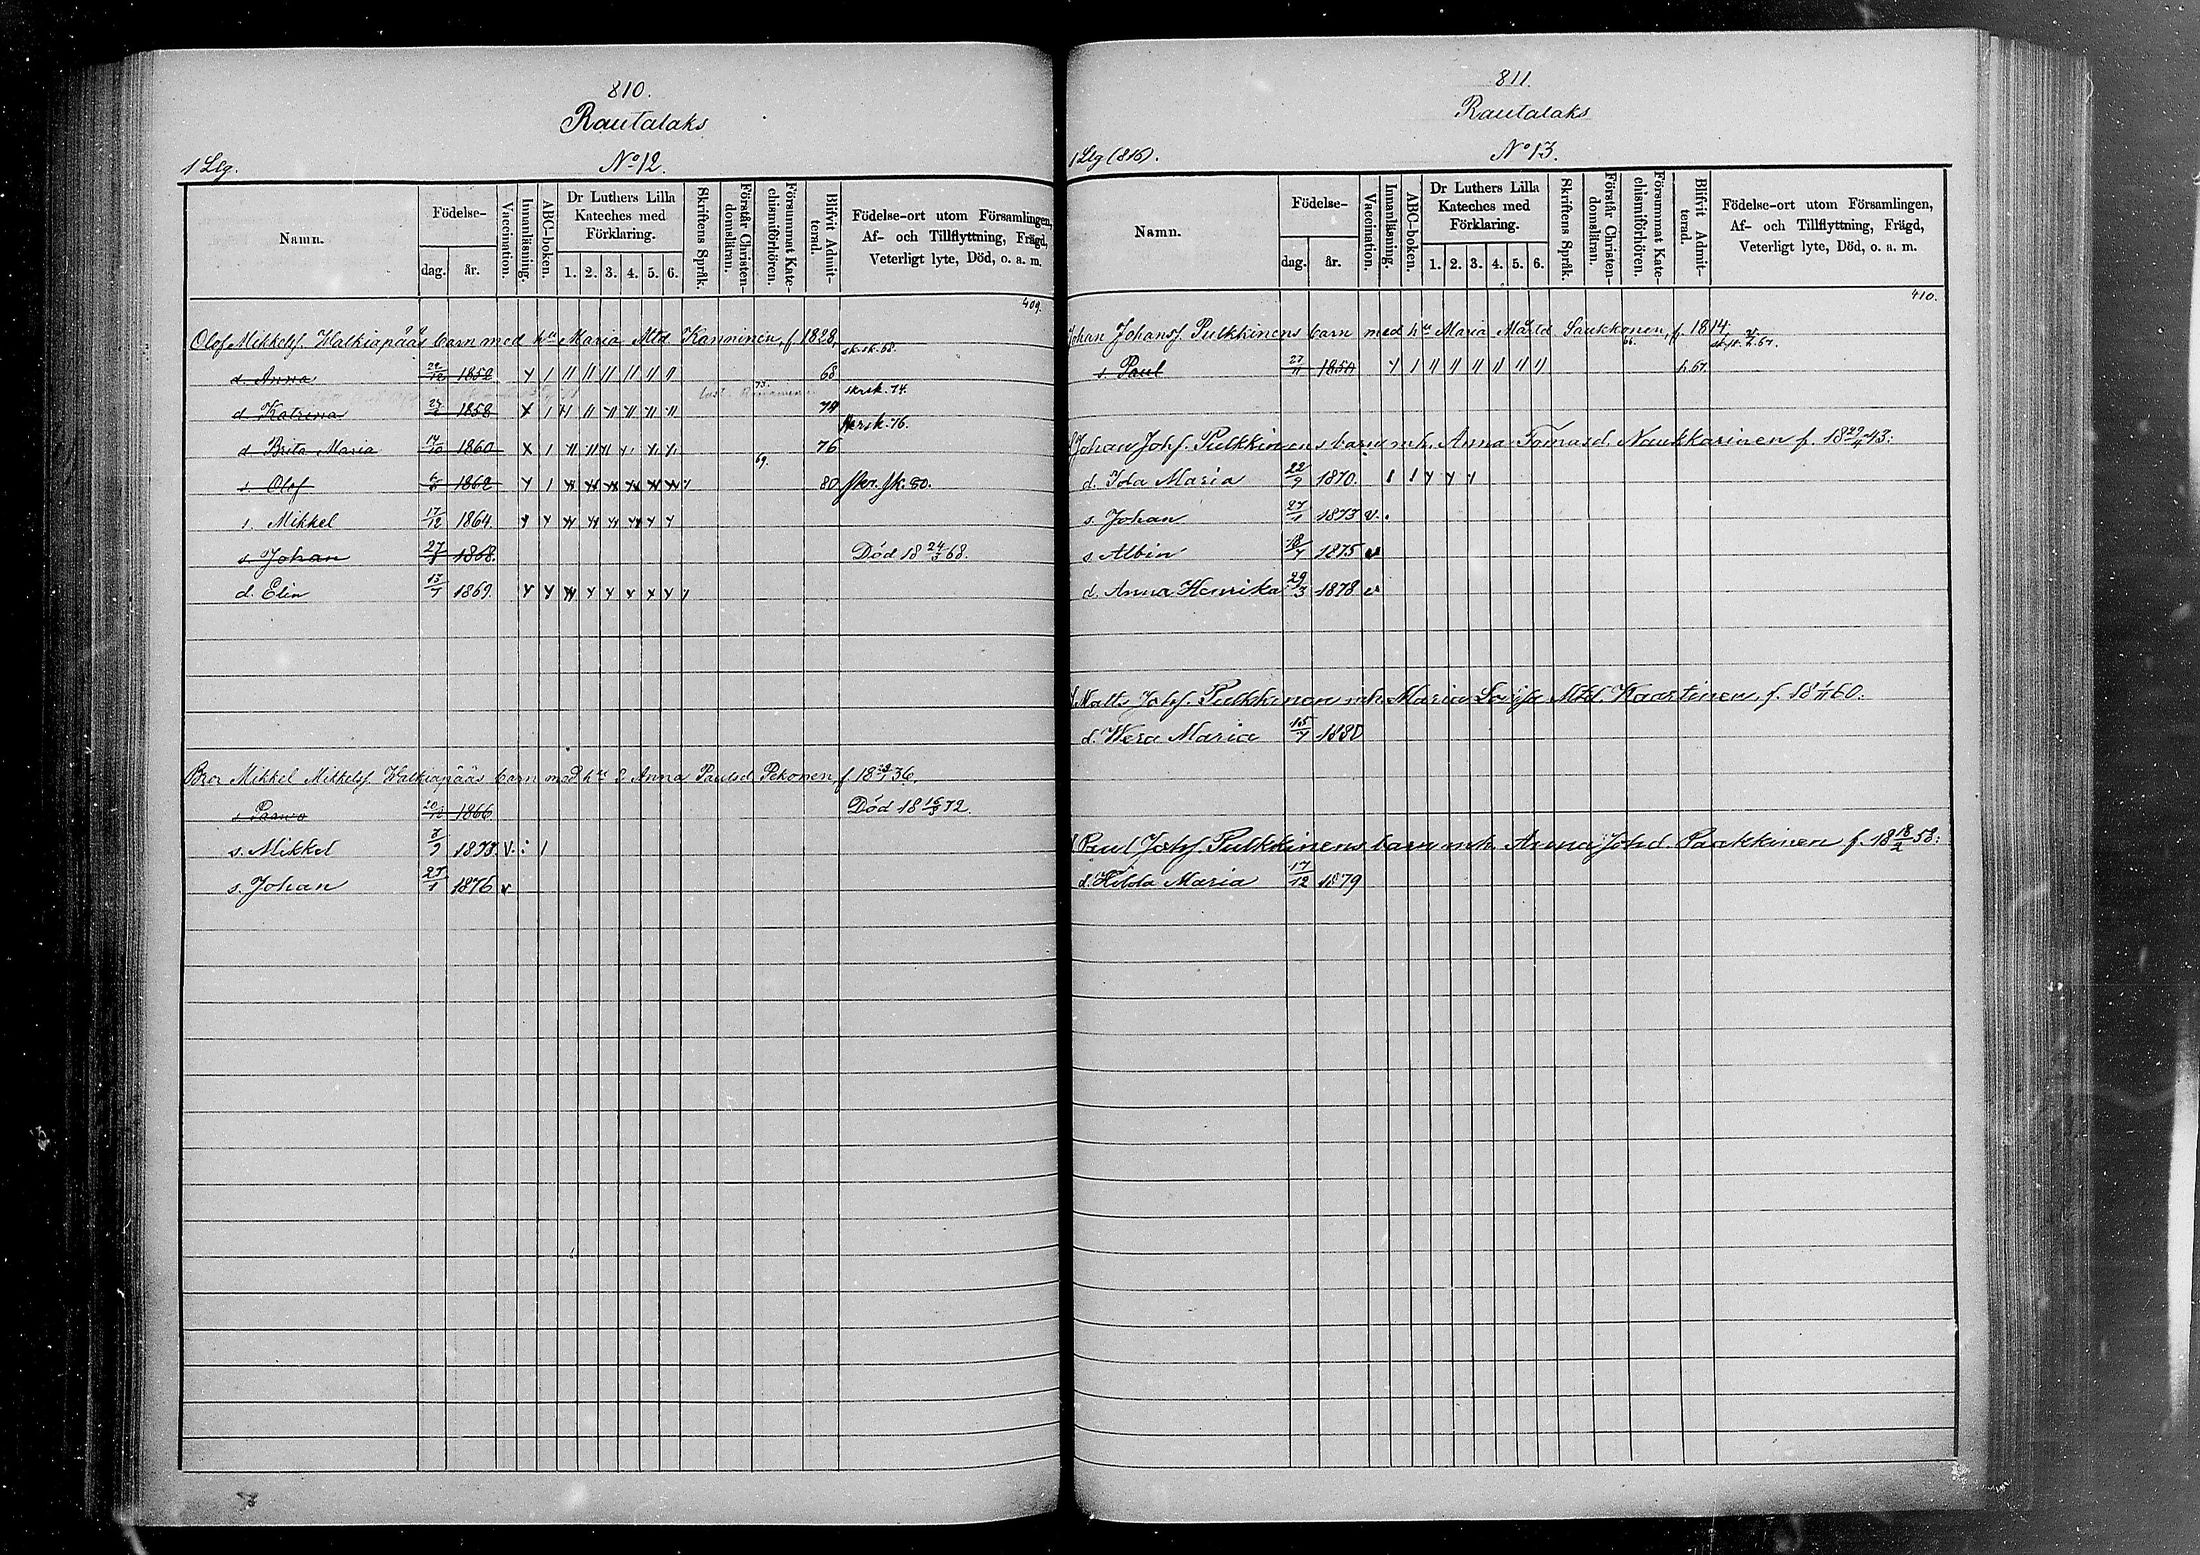 810.
Rautalaks
1 Llg. No 12.
Namn. Födelse- dag. år. Vaccination. Innanläsning. ABC-boken. Dr Luthers Lilla Kateches med Förklaring. 1. 2. 3. 4. 5. 6. Skriftens Språk. Förstår Christendomsläran. Försummat Katechismiförhören. Blifvit Admitterad. Födelse-ort utom Församlingen, Af- och Tillflyttning, Frägd, Veterligt lyte, Död, o. a. m.
409.
Olof Mikkelsf. Halkiapääs barn med hu Maria Mtd Kanninen, f 1828,
d. Anna 12 1852 68 sk.sk.68.
d Katrina 1858 73. 74 skrsk.74.
d Brita Maria 10 1860 76 skrsk.76.
s. Olof 1862 69. 80 skr.sk.80.
s. Mikkel 17/12 1864.
s. Johan 1868. Död 18 24/3 68.
d. Elin 13/7 1869.
Bror Mikkel Mikkelsf. Halkiapääs barn med hu 2 Anna Paulsd Pekonen f 18 36.
s 1866 Död 18 72.
s. Mikkel 9 1873. v.
s. Johan 1 1876 v
811.
Rautalaks
1 Llg (816). No 13.
Namn. Födelse- dag. år. Vaccination. Innanläsning. ABC-boken. Dr Luthers Lilla Kateches med Förklaring. 1. 2. 3. 4. 5. 6. Skriftens Språk. Förstår Christendomsläran. Försummat Katechismiförhören. Blifvit Admitterad. Födelse-ort utom Församlingen, Af- och Tillflyttning, Frägd, Veterligt lyte, Död, o. a. m.
410.
Johan Johansf. Pulkkinens barn med hu Maria Saukkonen, f. 1814.
s. Paul 27/11 1850 66. h.67.
Johan Johsf. Pulkkinens barn m.h. Anna Tomasd. Naukkarinen f. 18 29/4 43:
d. Ida Maria 22/9 1870.
s. Johan 27/1 1873 v.
s Albin 18/7 1875 v
d. Anna Henrika 29/3 1878 v
Matts Johsf. Pulkkinen mh Maria Lovisa Mtd. Kaartinen, f. 18 1/11 60:
d. Wera Maria 15/7 1880
Paul Johsf. Pulkkinens barn mh. Anna Johd. Paakkinen f. 18 18/2 58:
d. Hilda Maria 17/12 1879